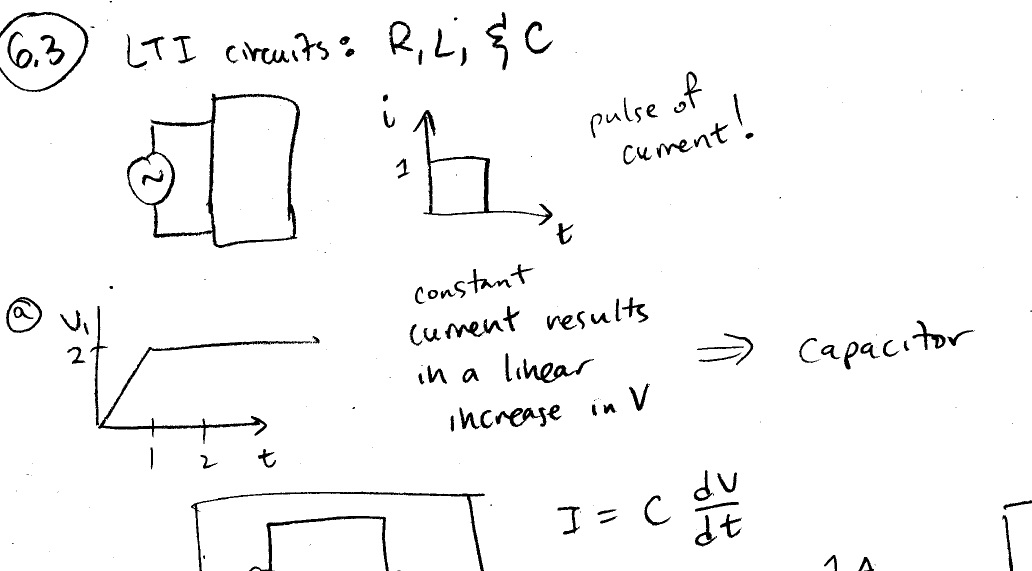 6.3 LTI circuits: R, L, & C
~
i
1
t
pulse of
current!
a
V1
2
1 2 t
constant
current results
in a linear
increase in V
⇒ capacitor
I = C dV/dt